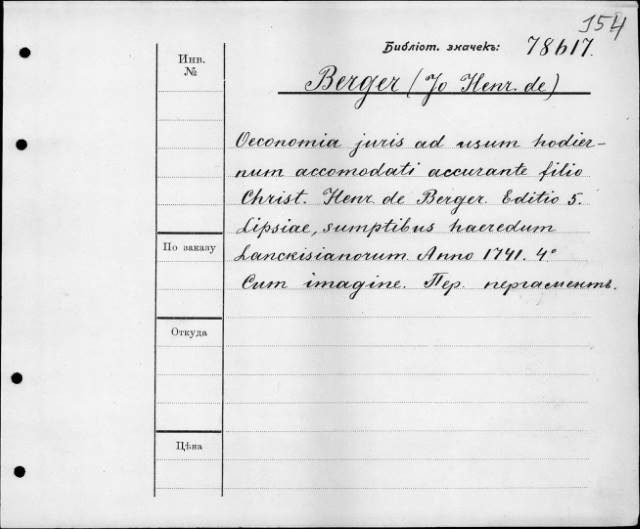 154
Библіот. значекъ: 78b17.
Инв.
№
Berger (Jo Henr. de)
Oeconomia juris ad usum hodier-
num accomodati accurante filio
Christ. Henr. de Berger. Editio 5.
Lipsiae, sumptibus haeredum
По заказу
Lanckisianorum. Anno 1741. 4°
Cum imagine. Пер. пергаментъ.
Откуда
Цѣна